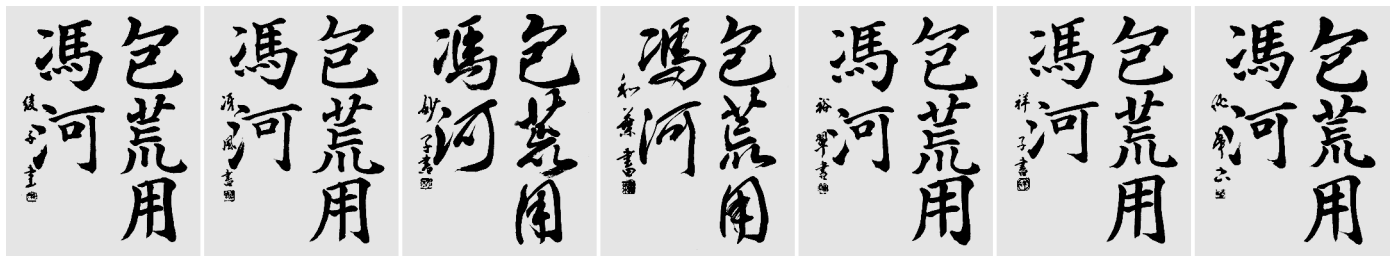 包荒用
馮河
綾子書
包荒用
馮河
清風書
包荒用
馮河
妙子書
包荒用
馮河
和葉書
包荒用
馮河
裕翠書
包荒用
馮河
祥子書
包荒用
馮河